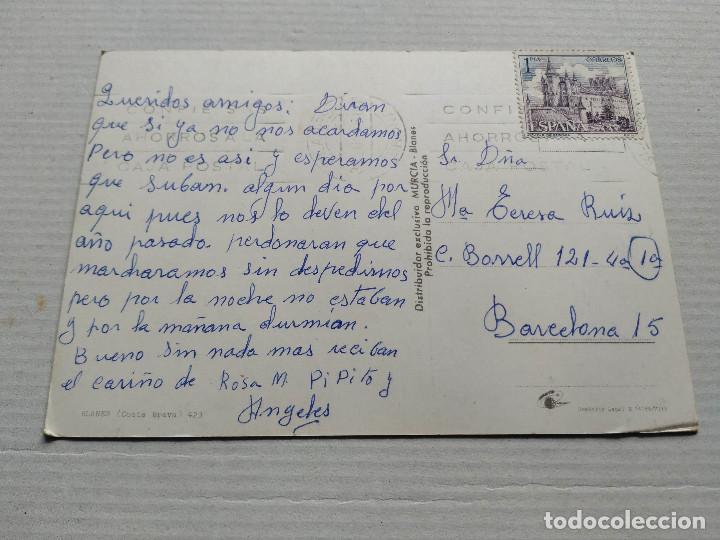 Queridos amigos: Diran
que si ya no nos acordamos
Pero no es asi y esperamos
que suban algun dia por
aqui pues nos lo deven del
año pasado. perdonaran que
marcharamos sin despedirnos
pero por la noche no estaban
y por la mañana durmian.
Bueno sin nada mas reciban
el cariño de Rosa M. PiPito y
Angeles
BLANES (Costa Brava) 423
Distribuidor exclusivo MURCIA - Blanes
Prohibida la reproducción
1 PTA
CORREOS
ESPAÑA
CONFIE S
AHORROS A LA
CAJA POSTAL
CONFI
AHORRO
CAJA POSTA
Sr. Dña
Mª Teresa Ruiz
C. Borrell 121-4º 1ª
Barcelona 15
Depósito Legal B
todocoleccion